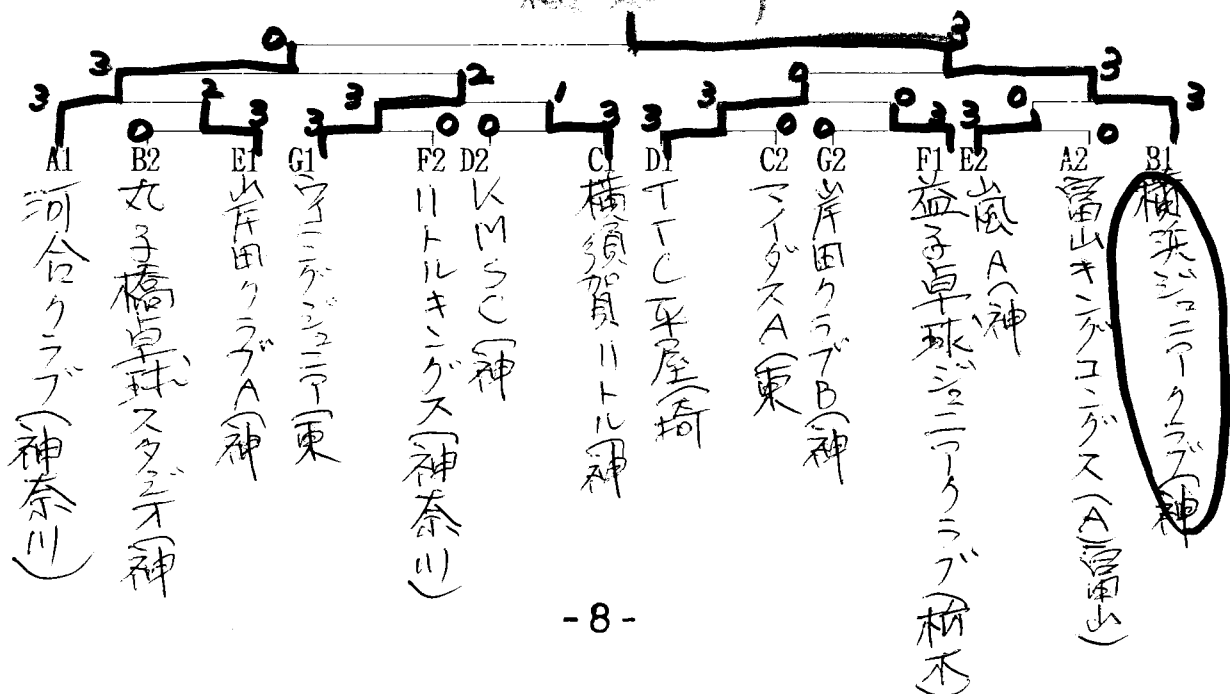 0 3
3 2 0 3
3 2 3 1 3 0 0 3
0 3 3 0 0 3 3 0 0 3 3 0
A1 B2 E1 G1 F2 D2 C1 D1 C2 G2 F1 E2 A2 B1
河合クラブ(神奈川)
丸子橋卓球スタジオ(神
岸田クラブA(神
ウイニングジュニア(東
リトルキングス(神奈川)
KMSC(神
横須賀リトル(神
TTC平屋(埼
マイダスA(東
岸田クラブB(神
益子卓球ジュニアクラブ(栃木)
嵐A(神
富山キングコングス(A)富山)
横浜ジュニアクラブ(神
-8-